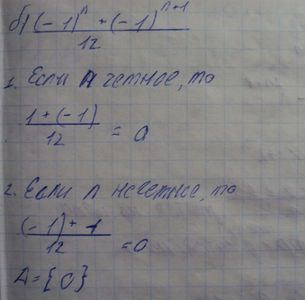 б) (-1)^n + (-1)^{n+1}
12
1. Если n четное, то
1 + (-1)
12 = 0
2. Если n нечетное, то
(-1) + 1
12 = 0
A = {0}